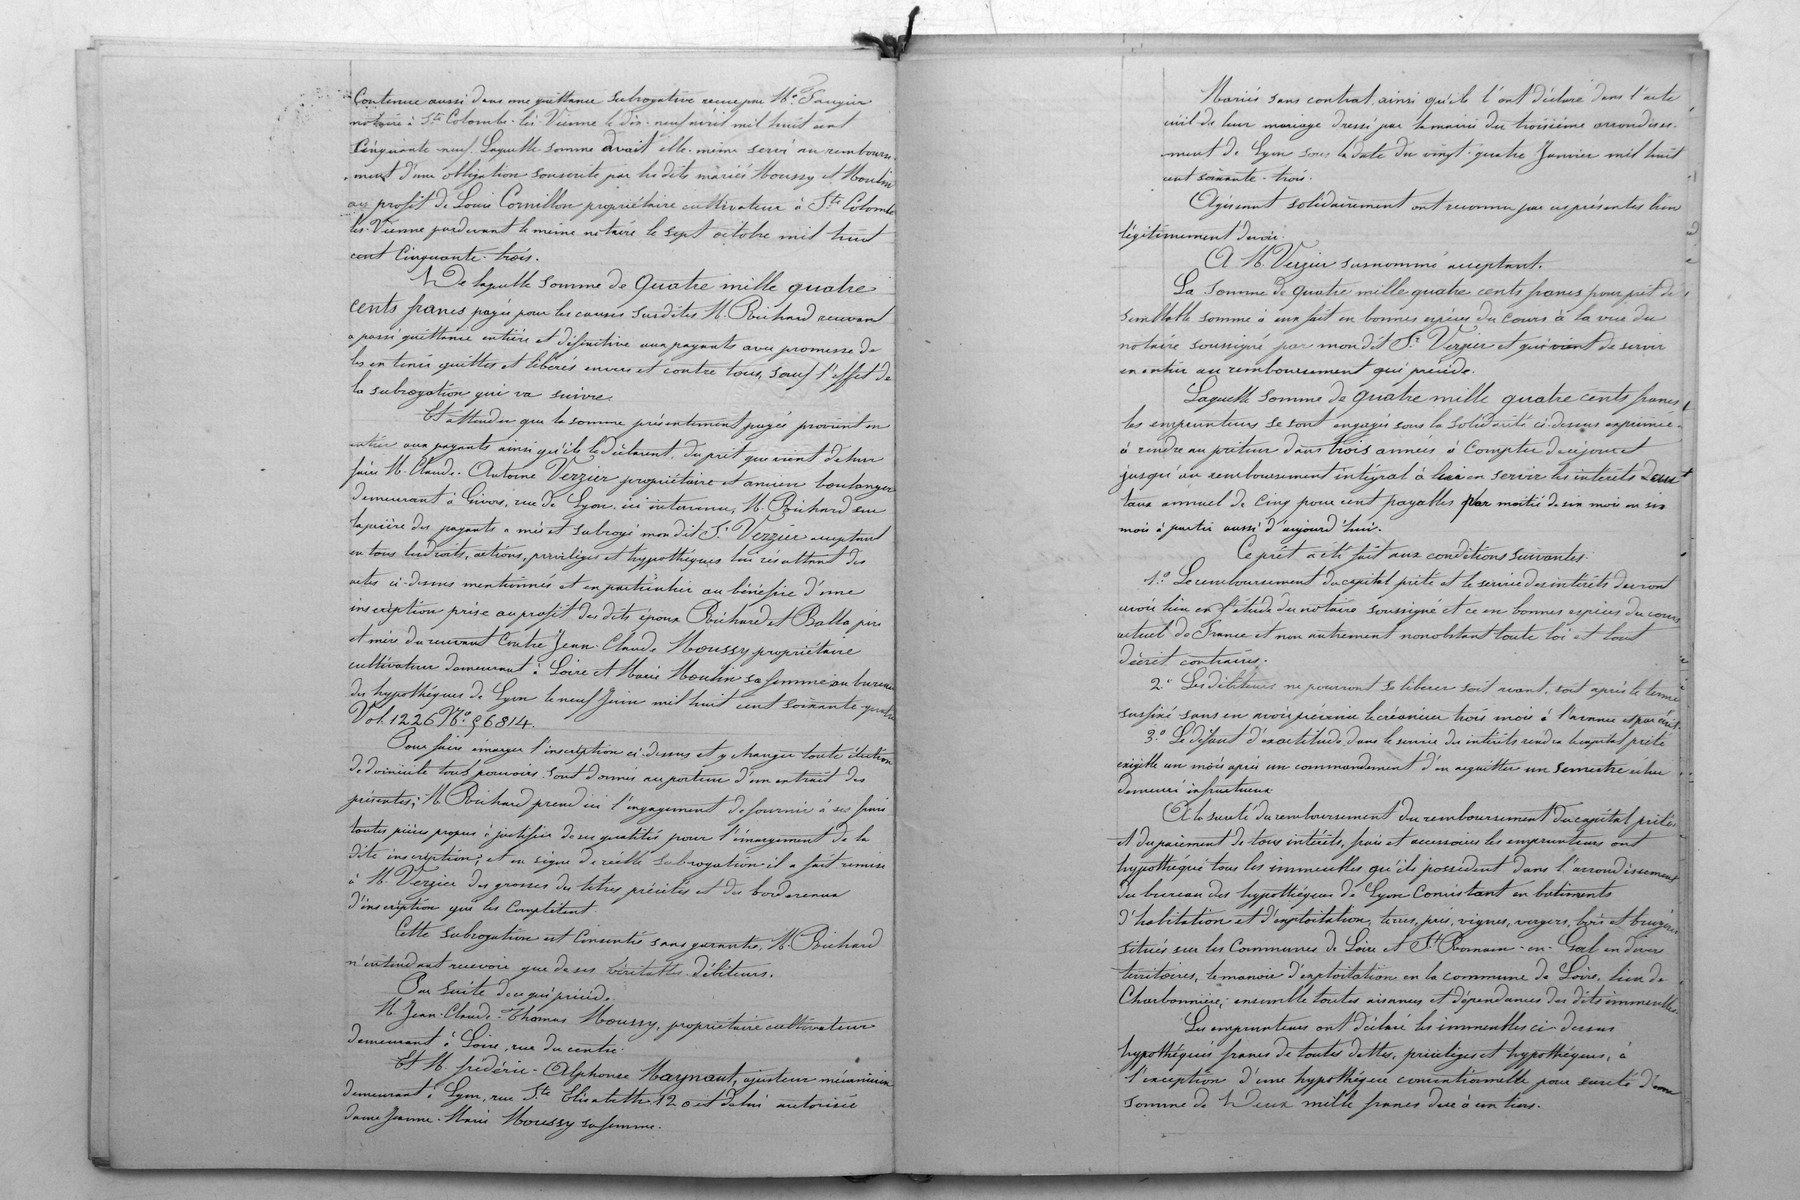 Contenue aussi dans une quittance subrogative reçue par Me Faugier
notaire à Ste Colombe-les-Vienne le dix-neuf avril mil huit cent
Cinquante-neuf. Laquelle somme avait elle-même servi au rembourse-
ment d'une obligation souscrite par les dits mariés Moussy et Moulin
au profit de Louis Cornillon propriétaire cultivateur à Ste Colombe
les-Vienne pardevant le même notaire le sept octobre mil huit
cent Cinquante-trois.
De laquelle somme de quatre mille quatre
cents francs payée pour les causes susdites M. Richard recevant
a passé quittance entière et définitive aux payants avec promesse de
les en tenir quittes et libérés envers et contre tous, sauf l'effet de
la subrogation qui va suivre.
Et attendu que la somme présentement payée provient en
entier aux payants ainsi qu'ils le déclarent, du prêt que vient de leur
faire M. Claude-Antoine Verzier propriétaire et ancien boulanger
demeurant à Givors, rue de Lyon, ici intervenu, M. Richard sur
la prière des payants a mis et subrogé mondit Sr Verzier acceptant
en tous les droits, actions, privilèges et hypothèques lui résultant des
actes ci-dessus mentionnés et en particulier au bénéfice d'une
inscription prise au profit des dits époux Richard et Balla père
et mère du recevant Contre Jean-Claude Moussy propriétaire
cultivateur demeurant à Loire et Marie Moulin sa femme au bureau
des hypothèques de Lyon le neuf Juin mil huit cent soixante-quatre
Vol. 1226 No 56814.
Pour faire émarger l'inscription ci-dessus et y changer toute élection
de domicile tous pouvoirs sont donnés au porteur d'un extrait des
présentes; M. Richard prend ici l'engagement de fournir à ses frais
toutes pièces propres à justifier de ses qualités pour l'émargement de la
dite inscription; et en signe de réelle subrogation il a fait remise
à M. Verzier des grosses des titres précités et des bordereaux
d'inscription qui les Complètent.
Cette subrogation est Consentie sans garantie, M. Richard
n'entendant recevoir que de ses véritables débiteurs.
Par suite de ce qui précède.
M. Jean-Claude-Thomas Moussy, propriétaire cultivateur
demeurant à Loire, rue du centre.
Et M. frédéric-Alphonse Maynaut, ajusteur mécanicien
demeurant à Lyon, rue Ste Elisabeth 120 et de lui autorisée
dame Jeanne-Marie Moussy sa femme.
Mariés sans contrat ainsi qu'ils l'ont déclaré dans l'acte
civil de leur mariage dressé par la mairie du troisième arrondisse-
ment de Lyon sous la date du vingt-quatre Janvier mil huit
cent soixante-trois.
Agissant solidairement ont reconnu par ces présentes bien
légitimement devoir.
A M. Verzier surnommé acceptant.
La somme de quatre mille quatre cents francs pour prêt de
semblable somme à eux fait en bonnes espèces du cours à la vue du
notaire soussigné par mondit Sr Verzier et qui vient de servir
en entier au remboursement qui précède.
Laquelle somme de quatre mille quatre cents francs
les emprunteurs se sont engagés sous la solidarité ci-dessus exprimée
à rendre au prêteur dans trois années à Compter de ce jour et
jusqu'au remboursement intégral à lui en servir les intérêts au
taux annuel de cinq pour cent payables par moitié de six mois en six
mois à partir aussi d'aujourd'hui.
Ce prêt a été fait aux conditions suivantes.
1o Le remboursement du capital prêté et le service des intérêts devront
avoir lieu en l'étude du notaire soussigné et ce en bonnes espèces du cours
actuel de France et non autrement nonobstant toute loi et tout
décret contraires.
2o Les débiteurs ne pourront se libérer soit avant, soit après le terme
susfixé sans en avoir prévenu le créancier trois mois à l'avance et par écrit.
3o Le défaut d'exactitude dans le service des intérêts rendra le capital prêté
exigible un mois après un commandement d'en acquitter un semestre échu
demeuré infructueux.
A la sureté du remboursement du remboursement du capital prêté
et du paiement de tous intérêts, frais et accessoires les emprunteurs ont
hypothéqué tous les immeubles qu'ils possèdent dans l'arrondissement
du bureau des hypothèques de Lyon Consistant en bâtiments
d'habitation et d'exploitation, terres, prés, vignes, vergers, bois et bruyères
situés sur les Communes de Loire et St Romain-en-Gal en divers
territoires, le manoir d'exploitation en la commune de Loire, lieu de
Charbonnière; ensemble toutes aisances et dépendances des dits immeubles.
Les emprunteurs ont déclaré les immeubles ci-dessus
hypothéqués francs de toutes dettes, privilèges et hypothèques, à
l'exception d'une hypothèque conventionnelle pour sureté d'une
somme de Deux mille francs due à un tiers.